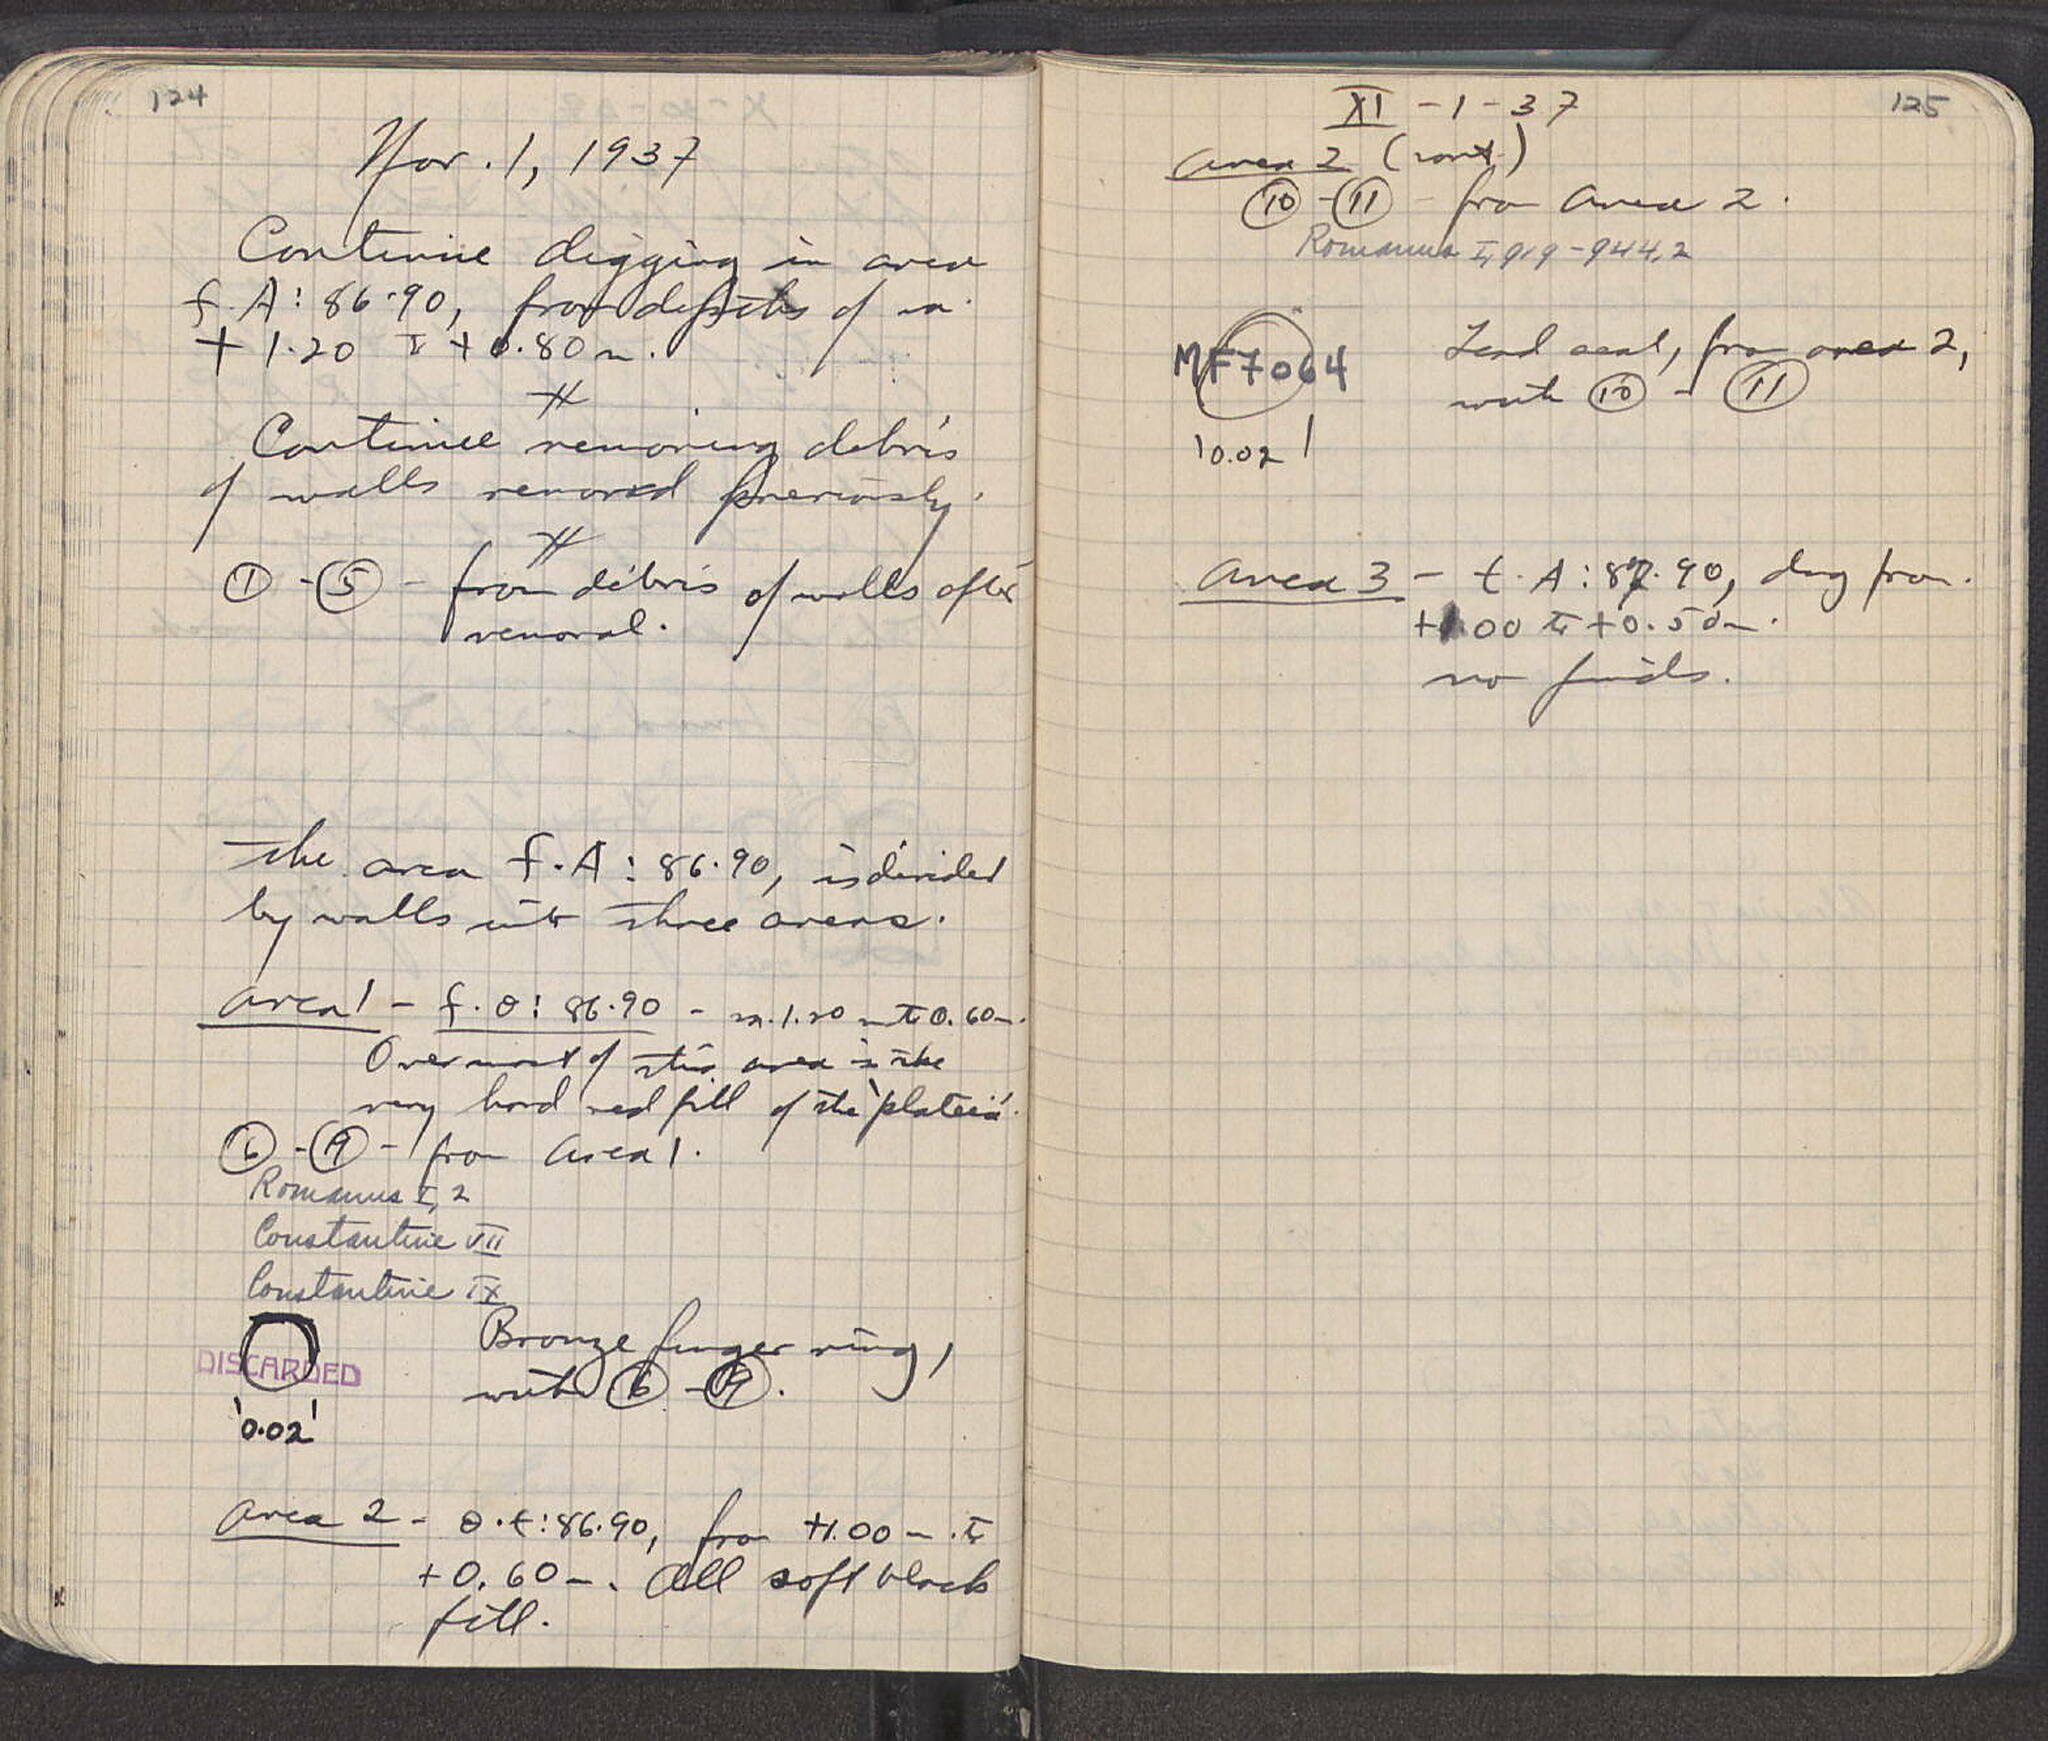 124
Nov. 1, 1937
Continue digging in area
f.A: 86.90, from depths of m.
+ 1.20 to + 0.80 m.
#
Continue removing debris
of walls removed previously.
#
① - ⑤ - from débris of walls after
removal.
The area f.A: 86.90, is divided
by walls into three areas.
Area 1 - f.θ: 86.90 - m.1.20 m to 0.60 m.
Over most of this area is the
very hard red fill of the 'plateia'.
⑥ - ⑨ - from Area 1.
Romanus I, 2
Constantine VII
Constantine IX
Bronze finger ring,
with ⑥ - ⑨.
DISCARDED
0.02
Area 2 - θ.t: 86.90, from +1.00 m. to
+0.60 m. All soft black
fill.
125
XI - 1 - 37
Area 2 (cont.)
⑩ - ⑪ - from Area 2.
Romanus I, 919-944, 2
MF7064
Lead seal, from area 2,
with ⑩ - ⑪
0.02
Area 3 - t.A: 87.90, dug from
+1.00 to +0.50 m.
no finds.